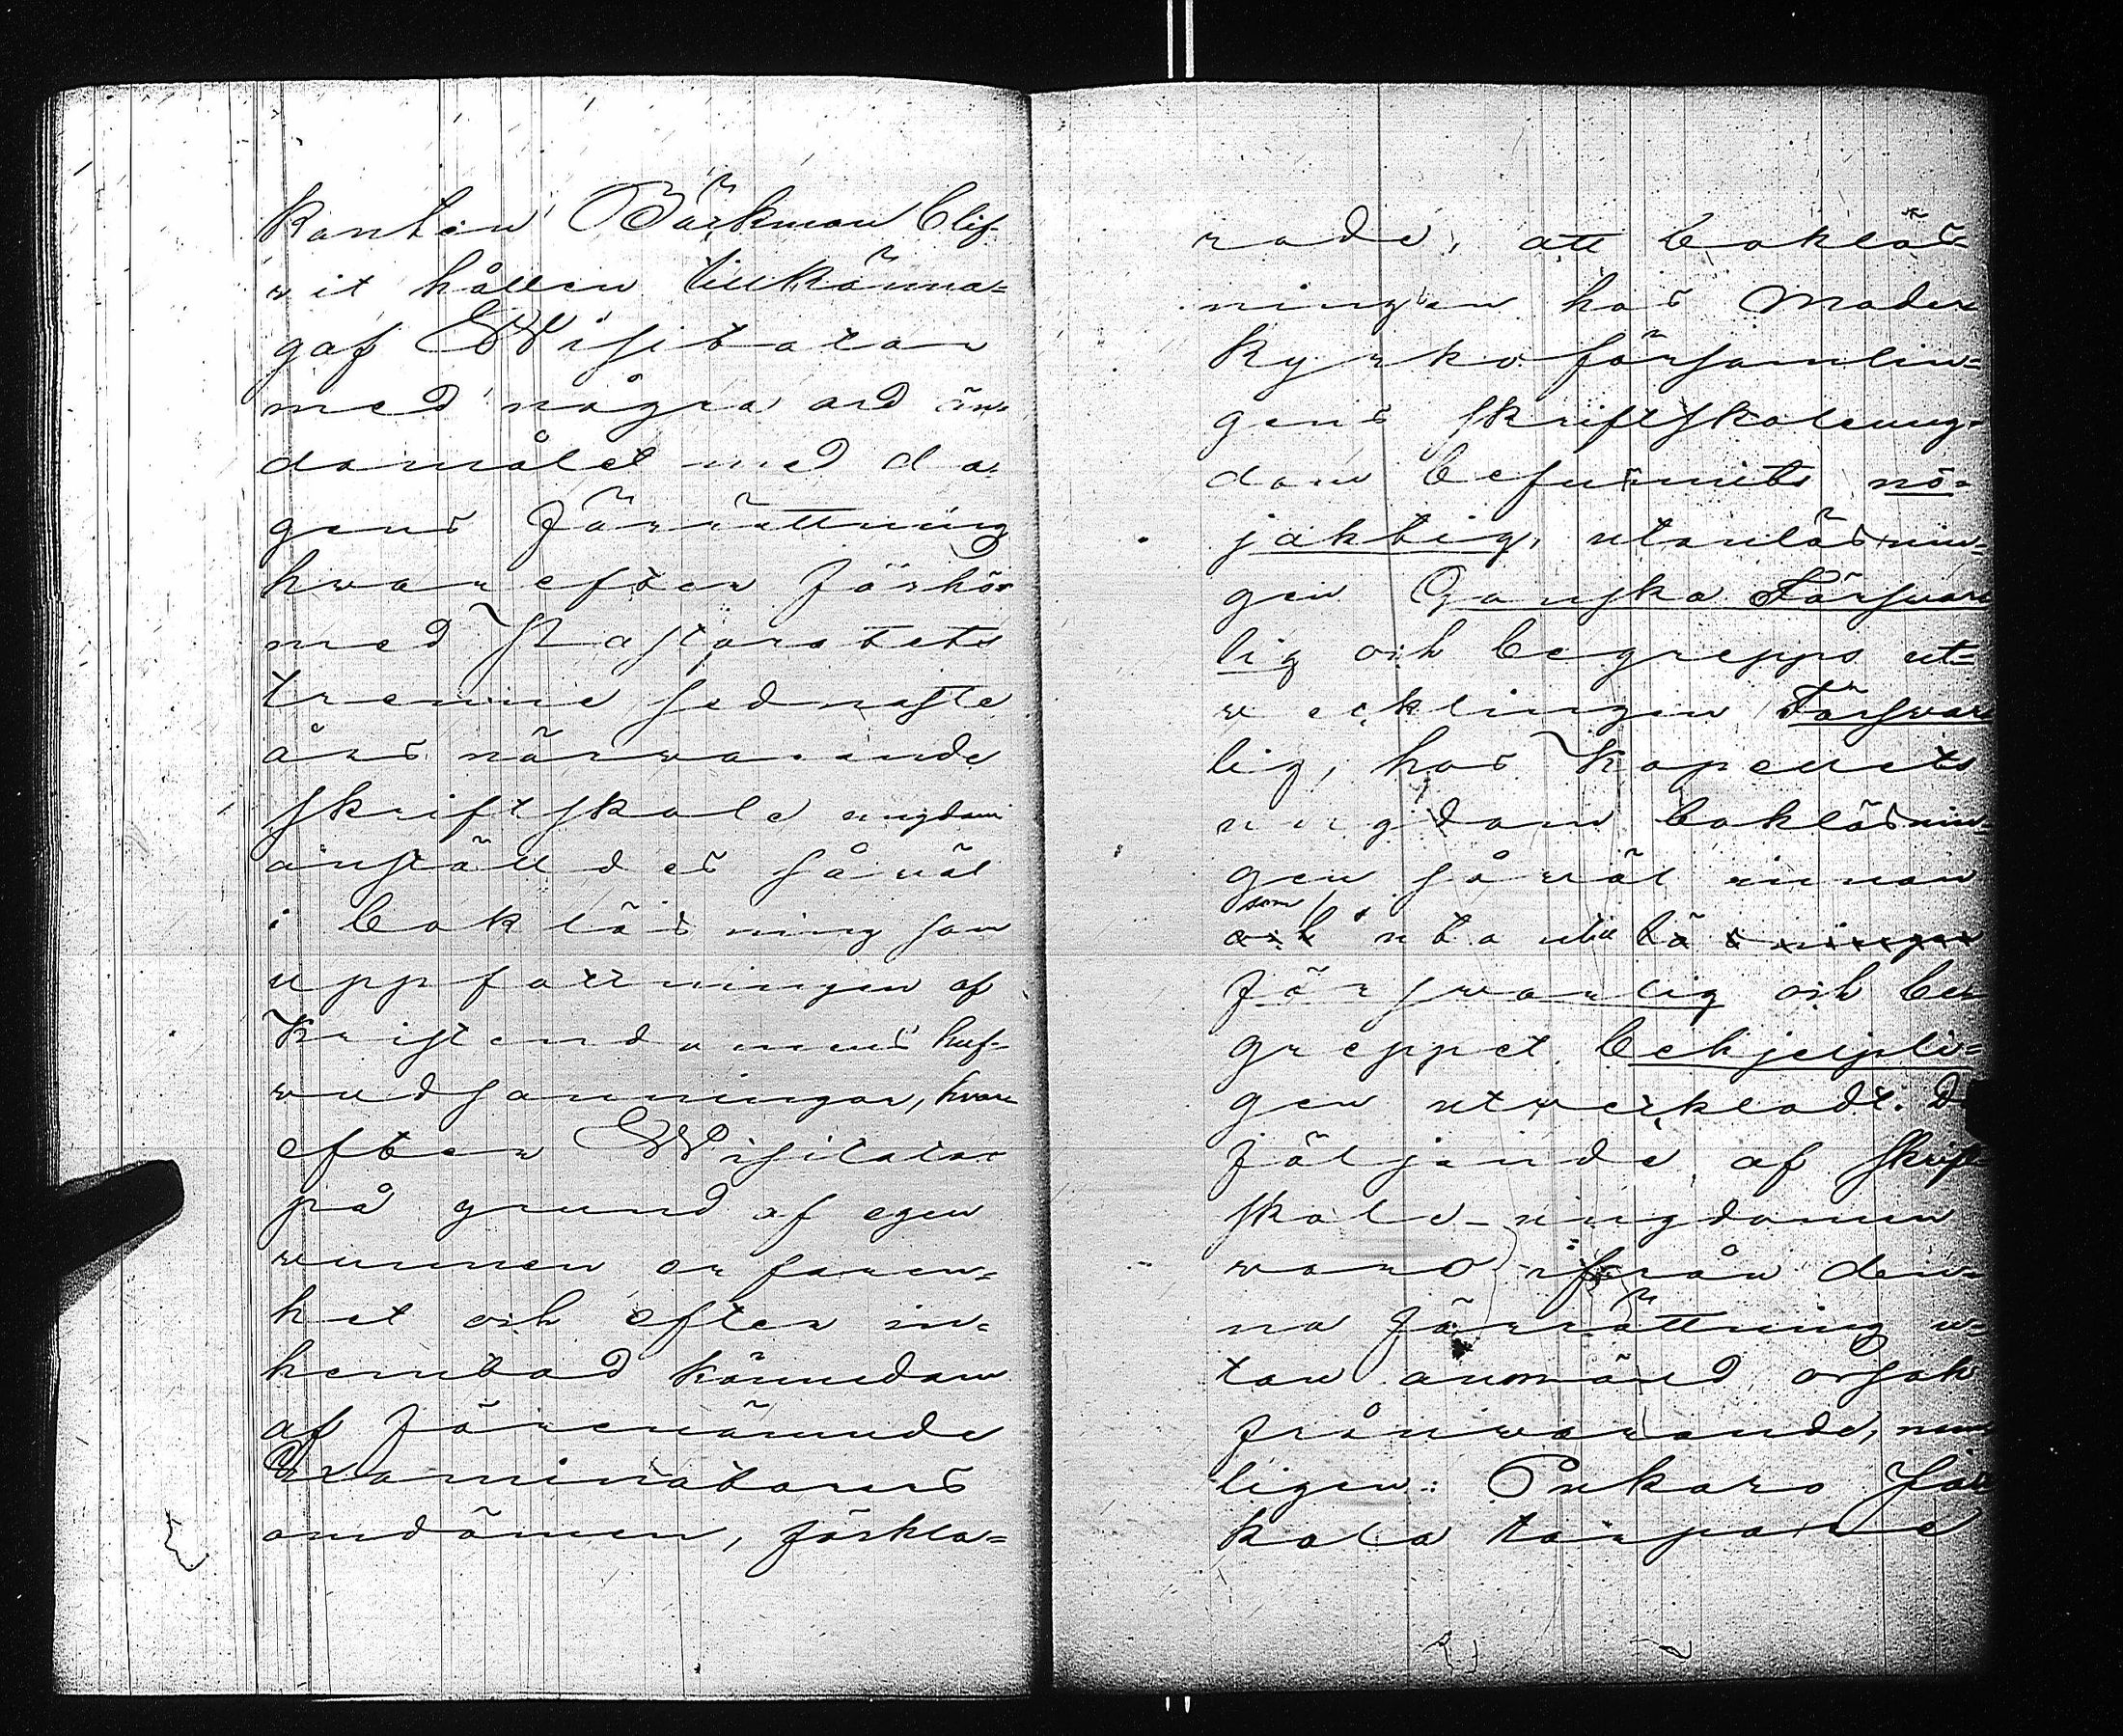 kantin Bäckman blif-
vit hållen tillkänna=
gaf Wisitator
med några ord än-
damålet med da-
gens förrättning
hvarefter förhör
med Pastoratets
trenne sednaste
års närvarande
skriftskole ungdom
anställdes såväl
i bokläsning som
uppfattningen af
Kristendomens huf-
vudsanningar, hvar-
efter Wisitator
på grund af egen
vunnen erfaren-
het och efter in-
hemtad kännedom
af förenämnde
Examinatorers
omdömen, förkla=
rade, att bokläs-
ningen hos Moder
kyrko församlin-
gens skriftskoleung-
dom befunnits nö-
jaktig, utanläsnin-
gen Ganska Försvar
lig och begrepps ut-
vecklingen Försvar
lig, hos Kapellets
ungdom bokläsnin-
gen såväl innan
som
och utantill läsningen
försvarlig och be-
greppet behjelpli-
gen utveckladt. De
följande af skrift
skole-ungdomen
voro ifrån den-
na förrättning u-
tan anmäld orsak
frånvarande, nem
ligen:
kala torpare